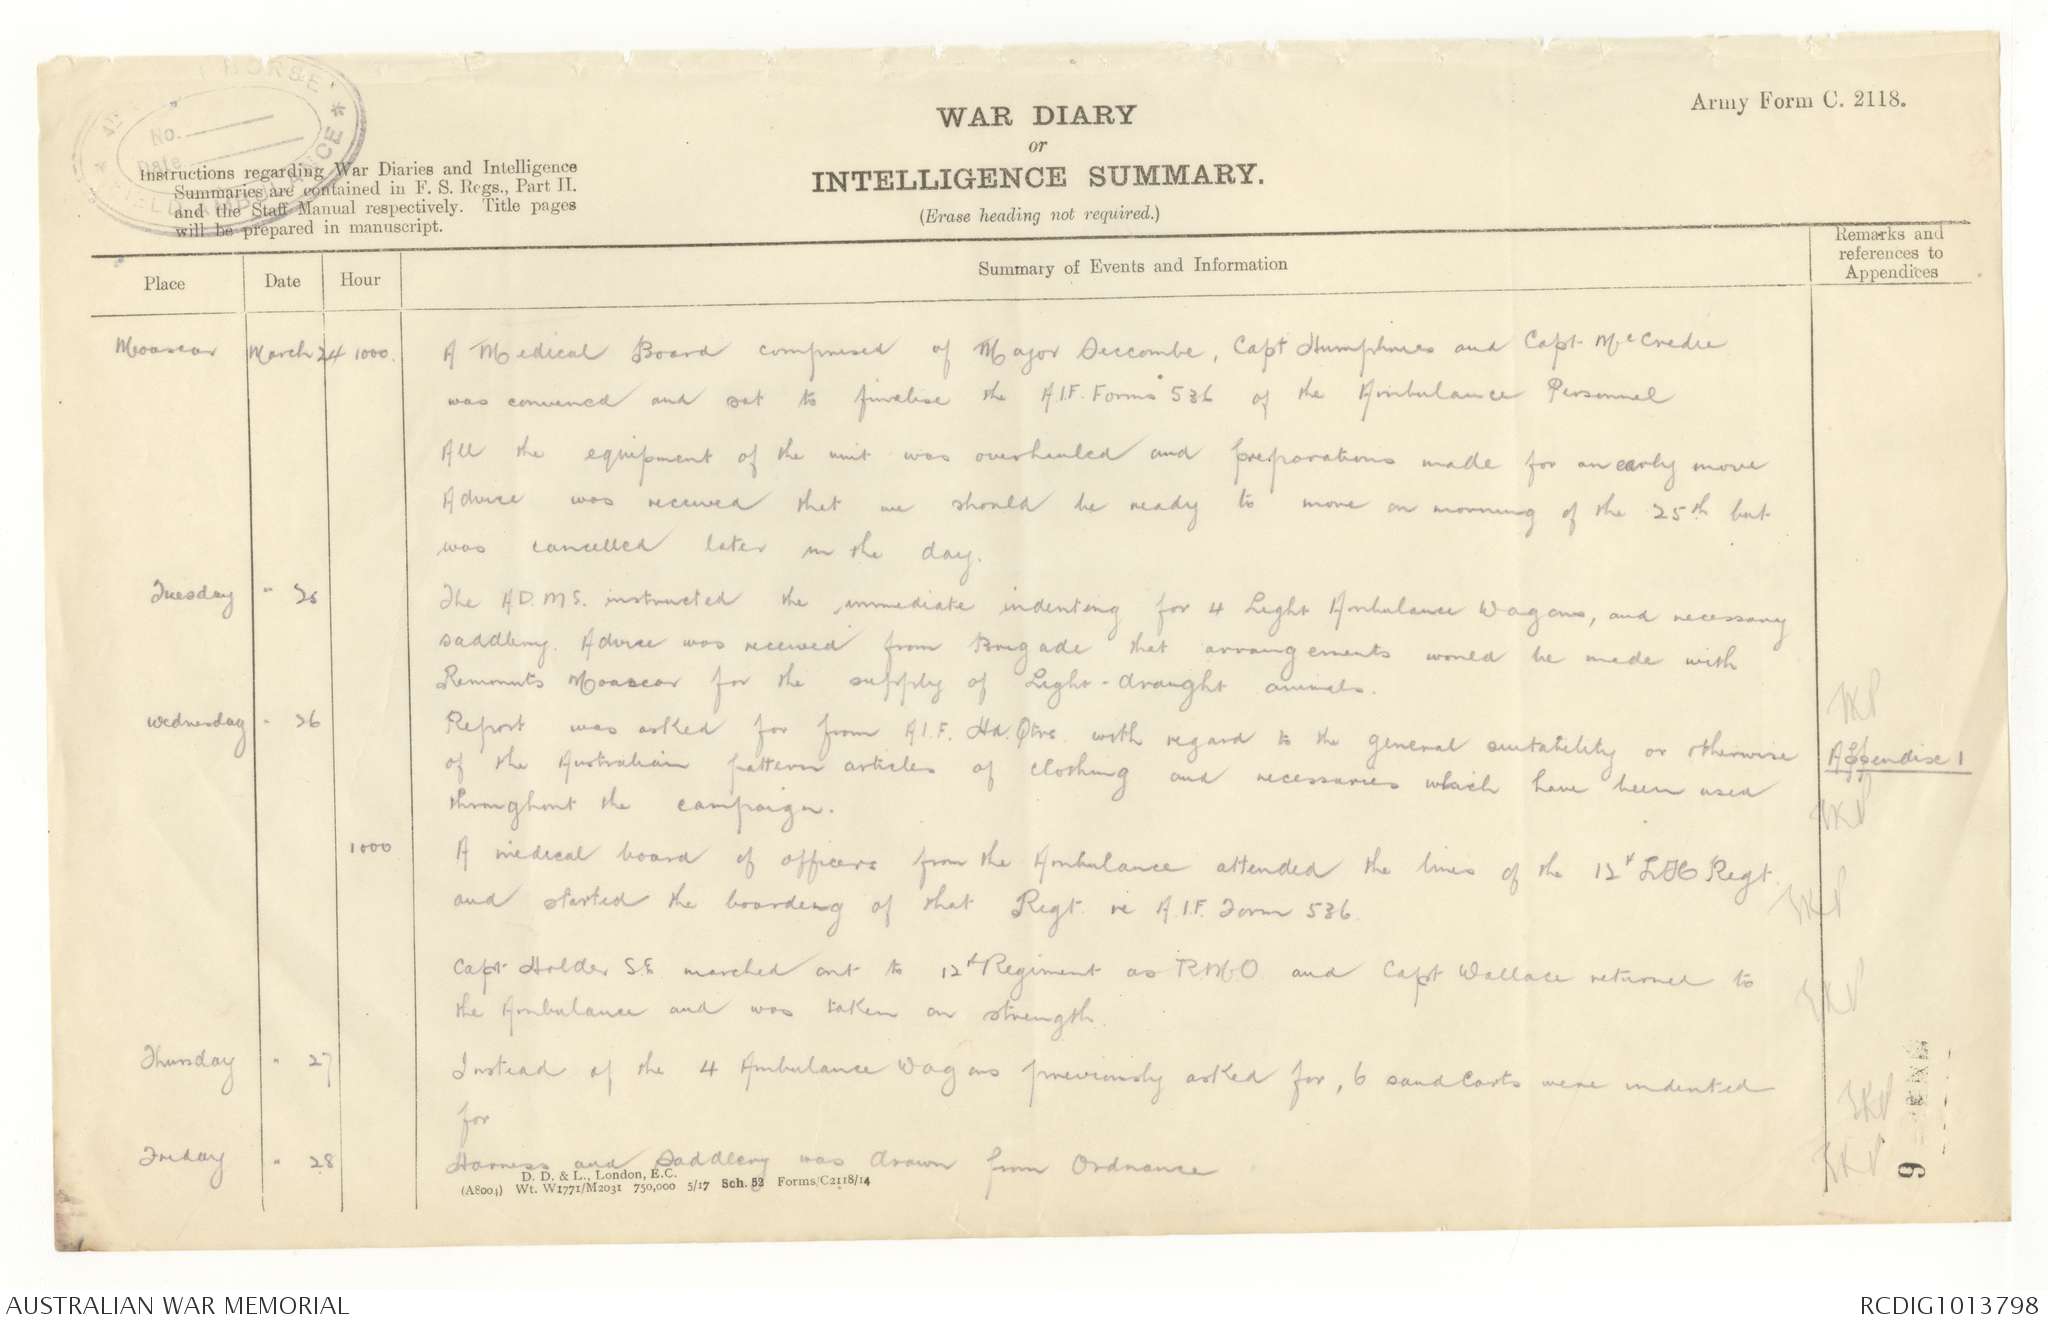 HORSE
No.
Date
FIELD AMBULANCE
Instructions regarding War Diaries and Intelligence
Summaries are contained in F. S. Regs., Part II.
and the Staff Manual respectively. Title pages
will be prepared in manuscript.
WAR DIARY
or
INTELLIGENCE SUMMARY.
(Erase heading not required.)
Army Form C. 2118.
Place Date Hour Summary of Events and Information Remarks and
references to
Appendices
Moascar March 24 1000. A Medical Board comprised of Major Seccombe, Capt Humphries and Capt. McCredie
was convened and sat to finalise the A.I.F. Forms 536 of the Ambulance Personnel
All the equipment of the unit was overhauled and preparations made for an early move
Advice was received that we should be ready to move on morning of the 25th but
was cancelled later in the day.
Tuesday " 25 The A.D.M.S. instructed the immediate indenting for 4 Light Ambulance Wagons, and necessary
saddlery. Advice was received from Brigade that arrangements would be made with
Remounts Moascar for the supply of Light-draught animals.
Wednesday " 26 Report was asked for from A.I.F. Hd. Qtrs. with regard to the general suitability or otherwise
of the Australian pattern articles of clothing and necessaries which have been used
throughout the campaign.
Appendix 1
1000 A medical board of officers from the Ambulance attended the lines of the 12th LH Regt.
and started the boarding of that Regt. re A.I.F. Form 536.
Capt Holder S.E. marched out to 12th Regiment as R.M.O. and Capt Wallace returned to
the Ambulance and was taken on strength.
Thursday " 27 Instead of the 4 Ambulance Wagons previously asked for, 6 sand carts were indented
for
Friday " 28 Harness and Saddlery was drawn from Ordnance
D. D. & L., London, E.C.
(A8004) Wt. W1771/M2031 750,000 5/17 Sch. 52 Forms/C2118/14
9
AUSTRALIAN WAR MEMORIAL
RCDIG1013798